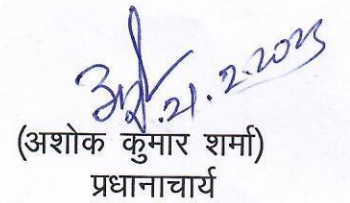 21.2.2025
(अशोक कुमार शर्मा)
प्रधानाचार्य